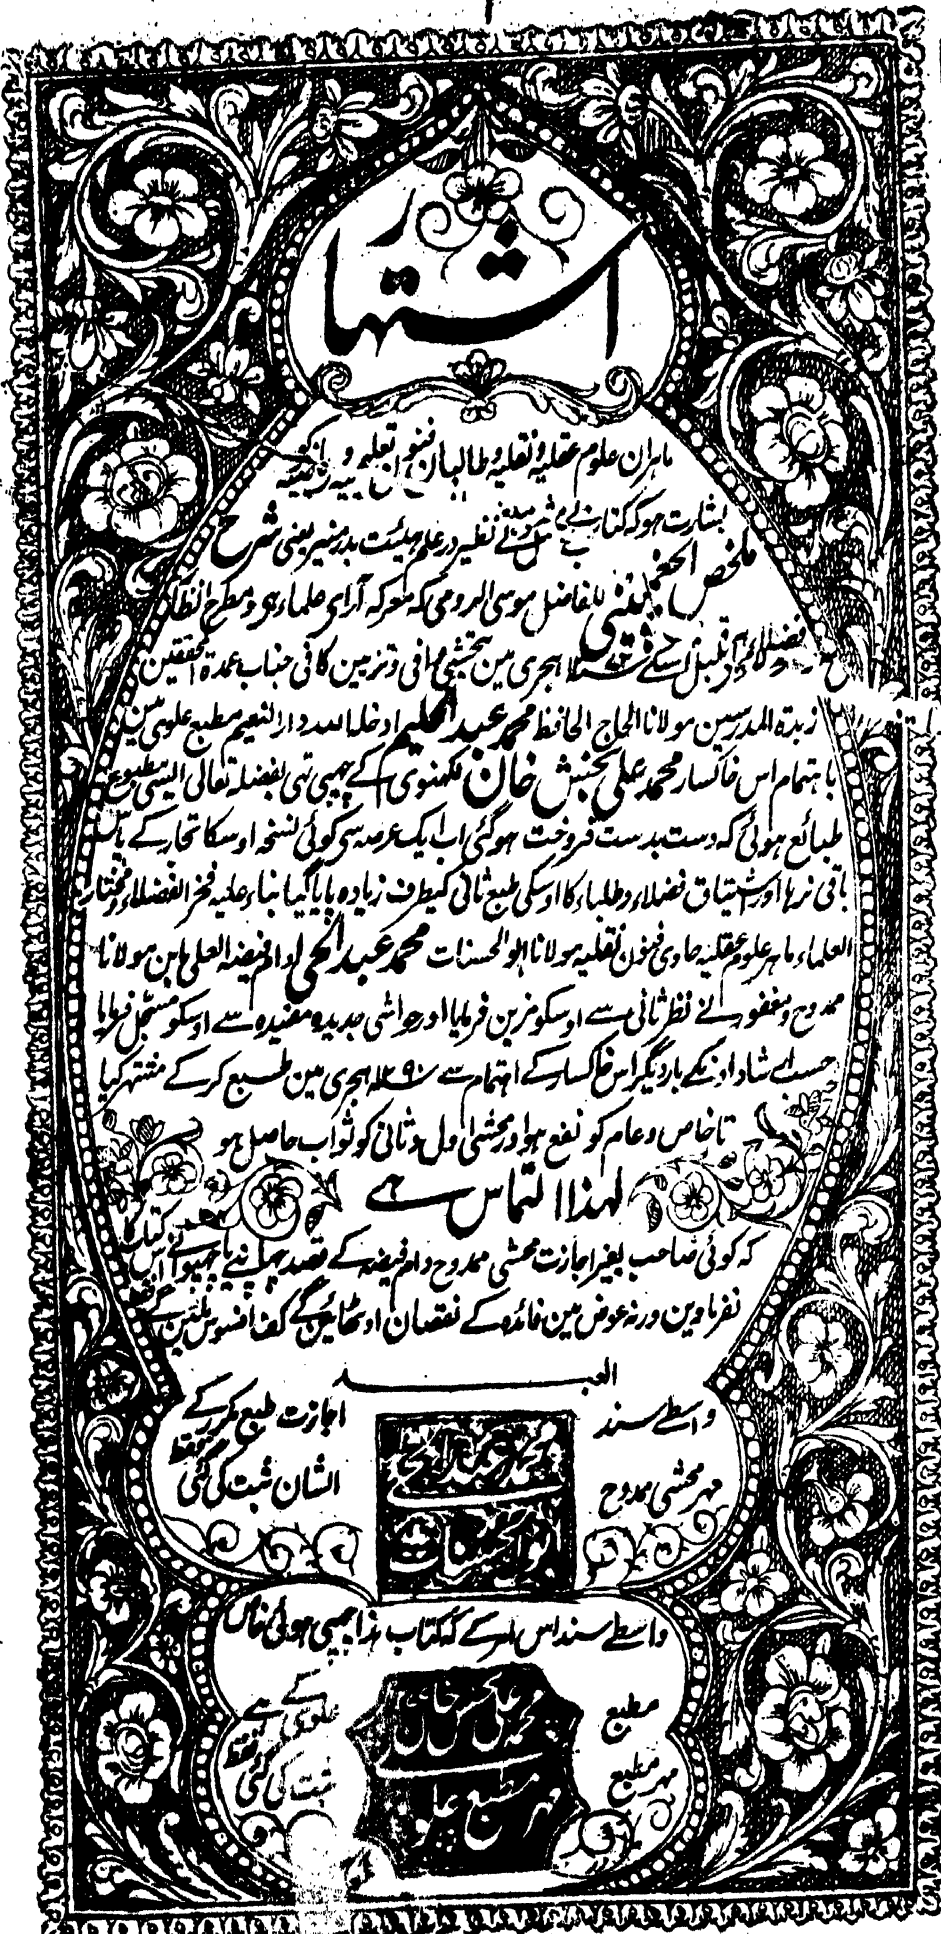 اشتہار
ماہران علوم عقلیہ و نقلیہ و طالبان فنون تعلیمیہ و
بشارت ہو کہ کتاب بے مثل و بے نظیر در علم ہیئت بدر منیر یعنی شرح
ملخص الچغمینی للفاضل موسی الرومی کہ معرکہ آرای علما دہر و مطرح انظار
فضلاء قبل سے ہجری مین تحشی وافی و تزیین کافی جناب عمدۃ المحققین
زبدۃ المدرسین مولانا الحاج الحافظ محمد عبد الحلیم ادخلہ اللہ دار النعیم مطبع علوی مین
باہتمام اس خاکسار محمد علی بخش خان لکھنوی کے چھپی تھی بفضلہ تعالی ایسی مطبوع
طبائع ہوئی کہ دست بدست فروخت ہو گئی اب ایک عرصہ سی کوئی نسخہ اوسکا تجار کے پاس
باقی نرہا اور اشتیاق فضلاء و طلباء کا اوسکی طبع ثانی کیطرف زیادہ پایا گیا بناء علیہ فخر الفضلاء و مختار
العلماء ماہر علوم عقلیہ حاوی فنون نقلیہ مولانا ابو الحسنات محمد عبد الحی ادام فیضہ العلی ابن مولانا
ممدوح و مغفور نے نظر ثانی سے اوسکو مزین فرمایا اور حواشی جدیدہ مفیدہ سے اوسکو مسجل فرمایا
حسب ارشاد اونکے بار دیگر اس خاکسار کے اہتمام سے ۱۲۹۰ ہجری مین طبع کر کے مشتہر کیا
تا خاص و عام کو نفع ہو اور محشی اول و ثانی کو ثواب حاصل ہو
لہذا التماس ہے
کہ کوئی صاحب بغیر اجازت محشی ممدوح دام فیضہ کے قصد چھاپنے یا چھپوانے اس کتاب کا
نفرماوین ورنہ عوض مین فائدہ کے نقصان اوٹھائینگے کف افسوس ملینگے فقط
العبد
واسطے سند اجازت طبع مکرر کے
محمد عبد الحی
مہر محشی ممدوح الشان ثبت کی گئی فقط
ابو الحسنات
واسطے سند اس امر کے کہ کتاب ہذا چھپی ہوئی خاص
مطبع علوی کے ہے
محمد علی بخش خان
مہر مطبع ثبت کی گئی فقط
مہر مطبع علوی